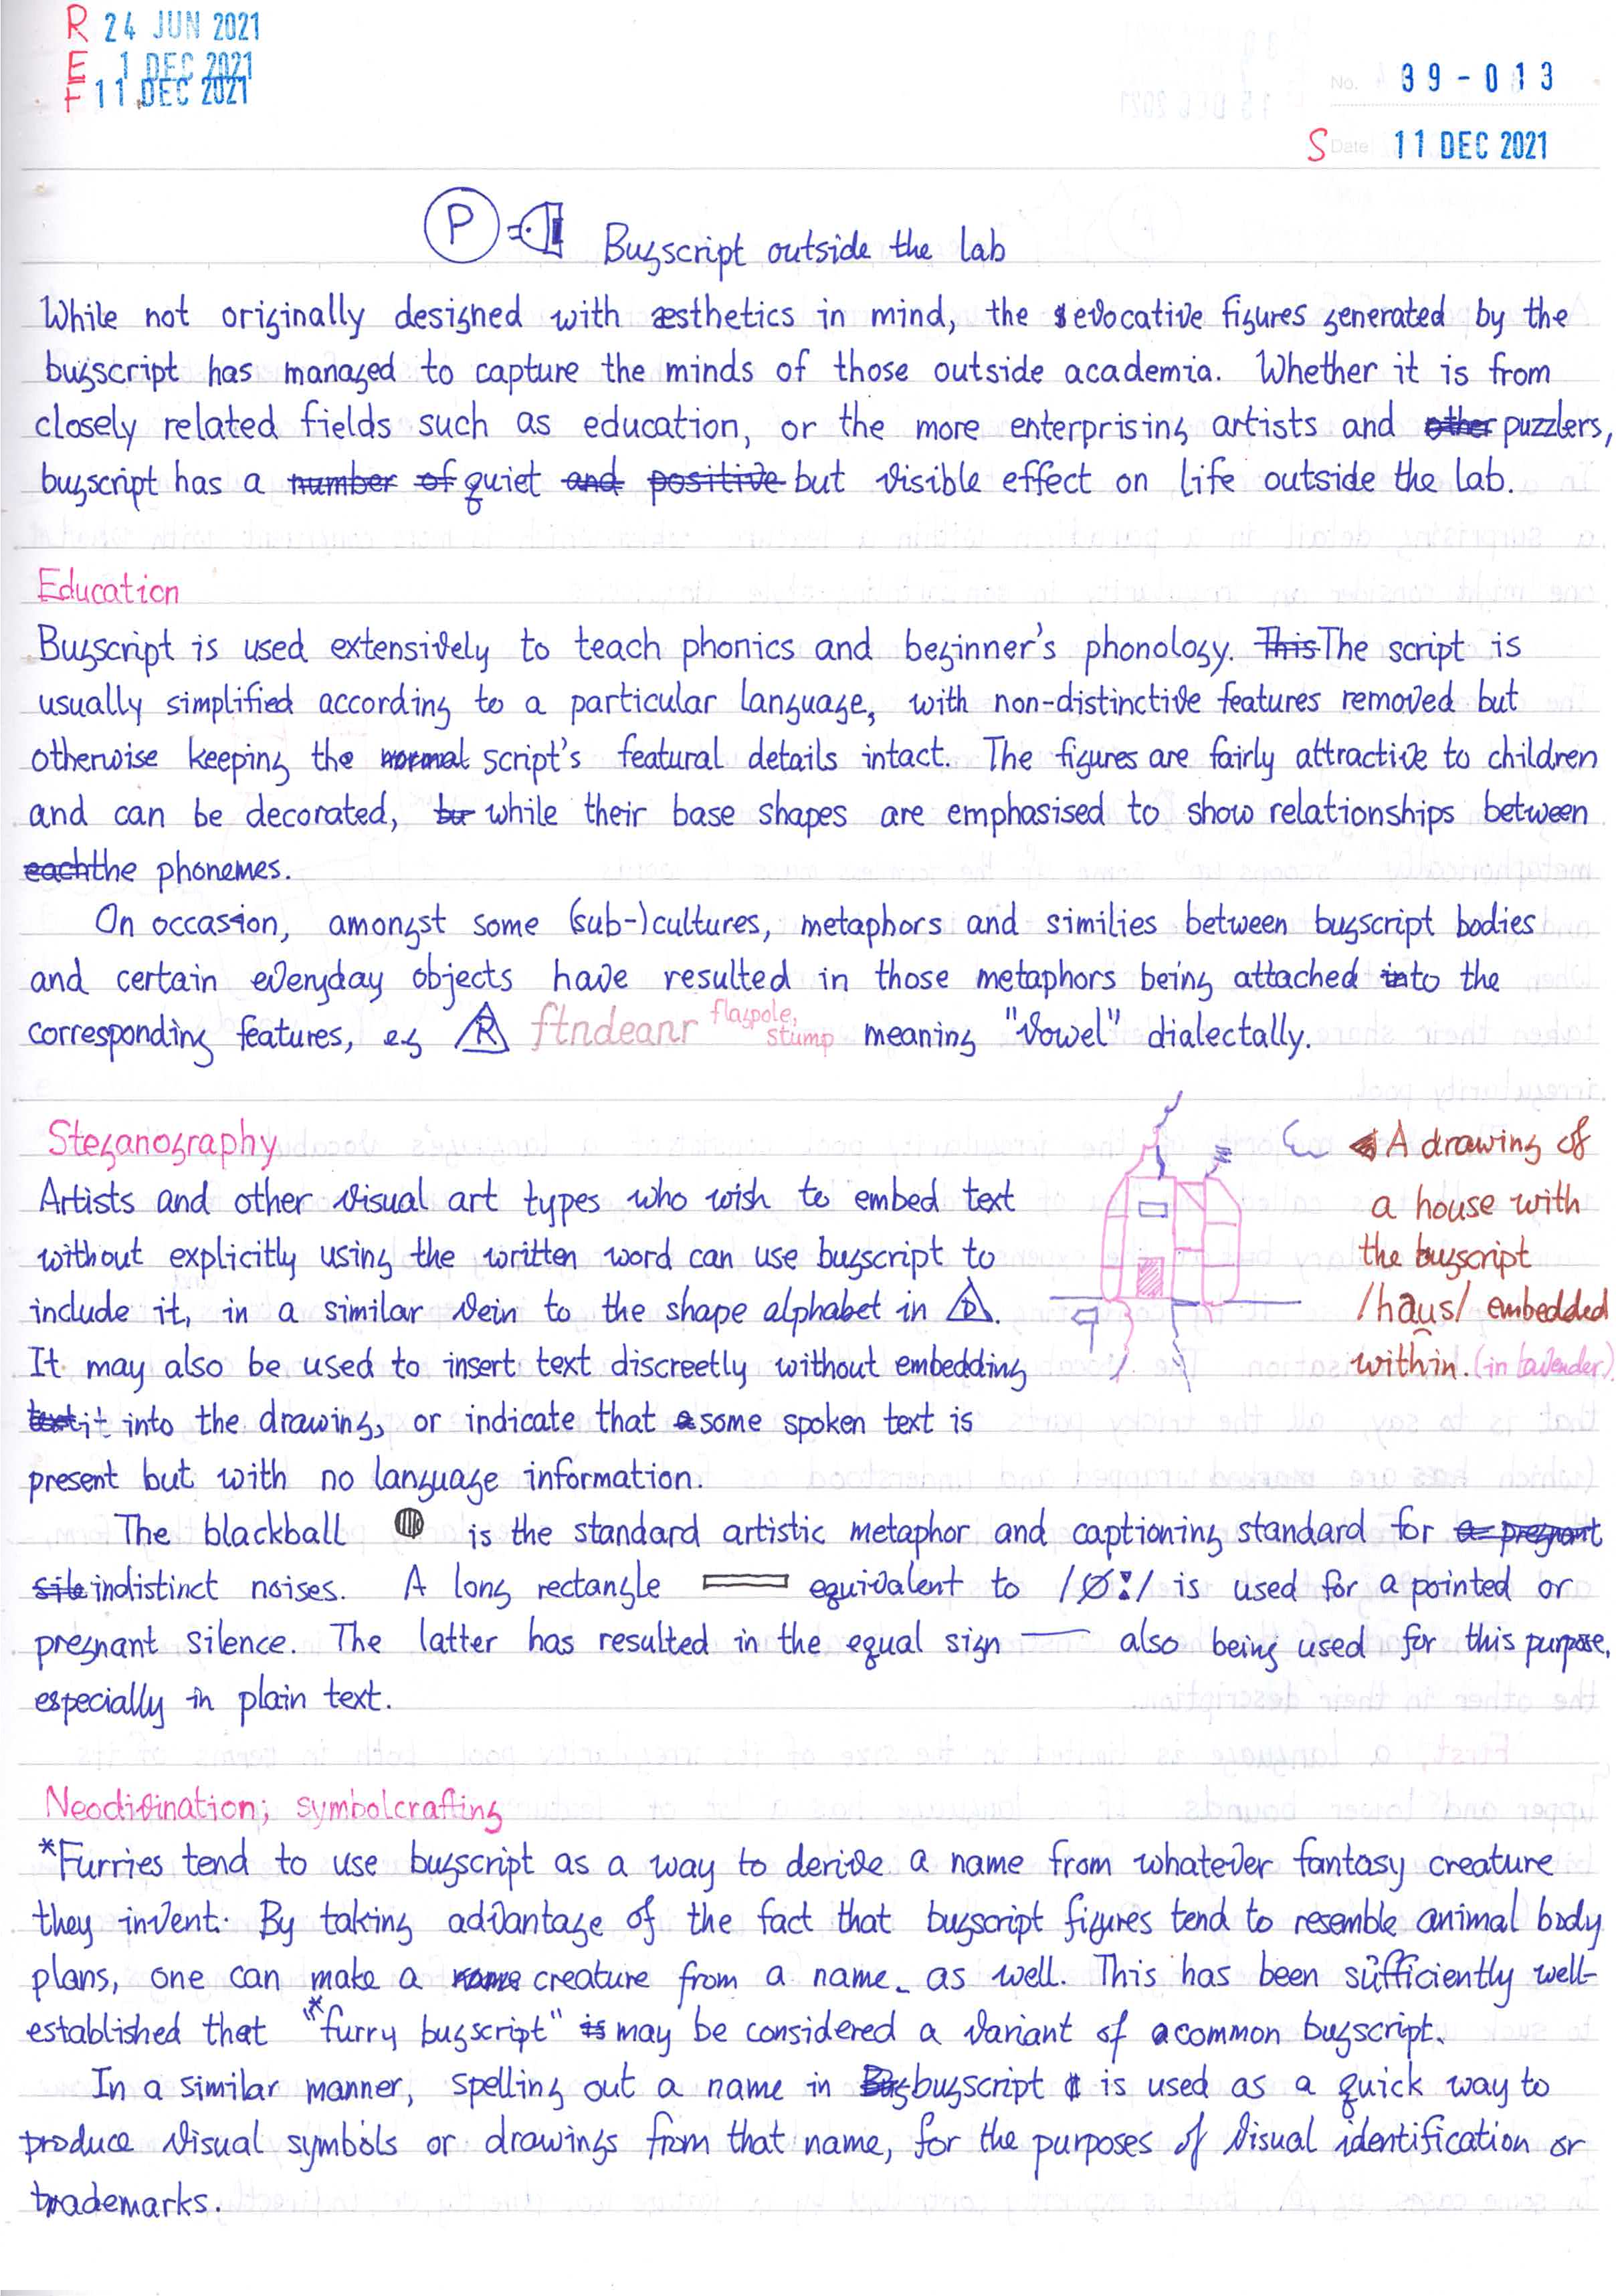 R 24 JUN 2021
E 1 DEC 2021
F 11 DEC 2021
No. 39-013
S Date 11 DEC 2021
P Bugscript outside the lab
While not originally designed with æsthetics in mind, the evocative figures generated by the
bugscript has managed to capture the minds of those outside academia. Whether it is from
closely related fields such as education, or the more enterprising artists and ~~other~~ puzzlers,
bugscript has a ~~number of~~ quiet ~~and positive~~ but visible effect on life outside the lab.
Education
Bugscript is used extensively to teach phonics and beginner's phonology. ~~This~~ The script is
usually simplified according to a particular language, with non-distinctive features removed but
otherwise keeping the ~~normal~~ script's featural details intact. The figures are fairly attractive to children
and can be decorated, ~~but~~ while their base shapes are emphasised to show relationships between
~~each~~ the phonemes.
On occasion, amongst some (sub-)cultures, metaphors and similies between bugscript bodies
and certain everyday objects have resulted in those metaphors being attached ~~in~~to the
corresponding features, eg R ftndeanr flagpole, stump meaning "vowel" dialectally.
Steganography
Artists and other visual art types who wish to embed text
without explicitly using the written word can use bugscript to
include it, in a similar vein to the shape alphabet in D.
It may also be used to insert text discreetly without embedding
~~text~~ it into the drawing, or indicate that ~~a~~ some spoken text is
present but with no language information.
A drawing of
a house with
the bugscript
/hau̯s/ embedded
within. (in lavender)
The blackball is the standard artistic metaphor and captioning standard for ~~a pregnant~~
~~sile~~ indistinct noises. A long rectangle equivalent to /∅ː/ is used for a pointed or
pregnant silence. The latter has resulted in the equal sign — also being used for this purpose,
especially in plain text.
Neodivination; symbolcrafting
*Furries tend to use bugscript as a way to derive a name from whatever fantasy creature
they invent. By taking advantage of the fact that bugscript figures tend to resemble animal body
plans, one can make a ~~name~~ creature from a name as well. This has been sufficiently well-
established that "*furry bugscript" ~~is~~ may be considered a variant of common bugscript.
In a similar manner, spelling out a name in ~~Bug~~ bugscript is used as a quick way to
produce visual symbols or drawings from that name, for the purposes of visual identification or
trademarks.